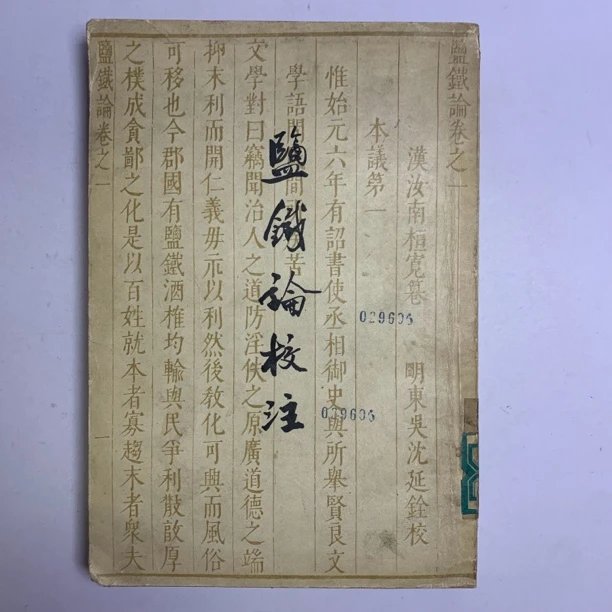 鹽鐵論校注
鹽鐵論卷之一
漢汝南桓寬
明東吳沈延銓校
本議第一
惟始元六年有詔書使丞相御史與所舉賢良文
學語
間
苦
文學對曰竊聞治人之道防淫佚之原廣道德之端
抑末利而開仁義毋示以利然後教化可興而風俗
可移也今郡國有鹽鐵酒榷均輸與民爭利散敦厚
之樸成貪鄙之化是以百姓就本者寡趨末者衆夫
鹽鐵論卷之一
一
029606
029606